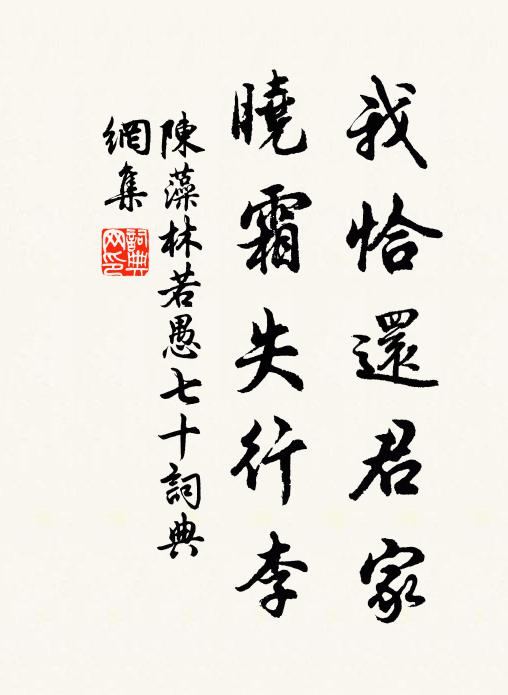 我恰還君家
曉霜失行李
陳藻林若愚七十詞典
網集
詞典
网印